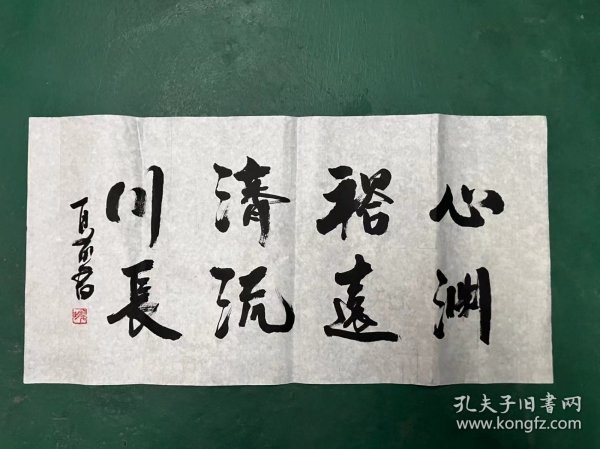 心渊
裕遠
濟流
川長
孔夫子旧書网
www.kongfz.com